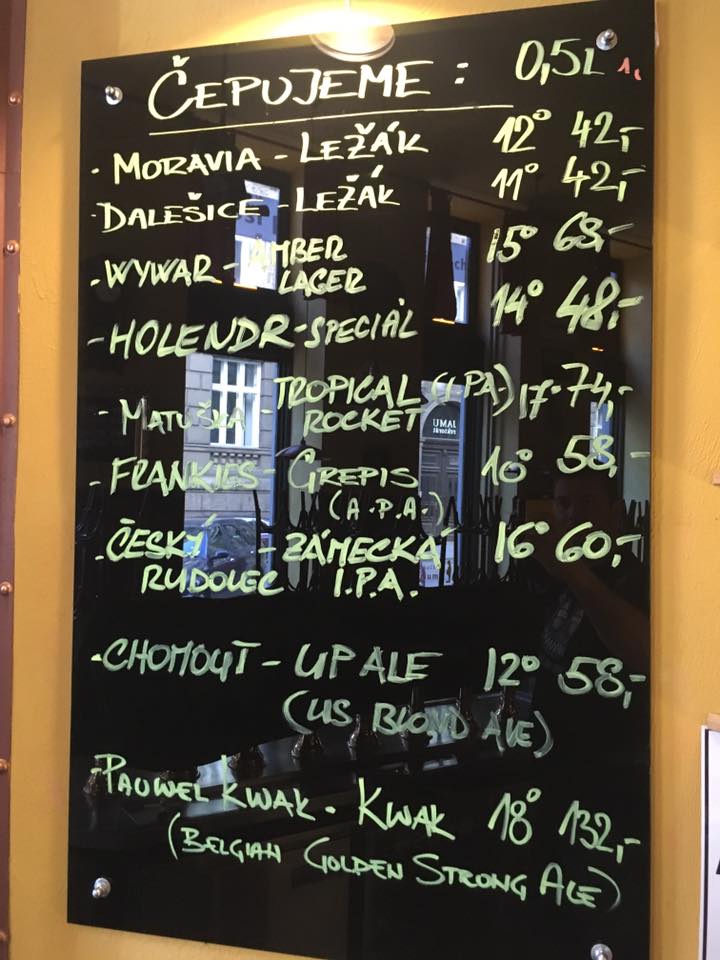 ČEPUJEME : 0,5L
· MORAVIA - LEŽÁK 12° 42,-
· DALEŠICE - LEŽÁK 11° 42,-
· WYWAR - AMBER LAGER 15° 68,-
- HOLENDR - SPECIÁL 14° 48,-
- MATUŠKA - TROPICAL (IPA) 17° 74,-
ROCKET
- FRANKIES - GREPIS 16° 58,-
(A.P.A.)
· ČESKÝ - ZÁMECKÁ 16° 60,-
RUDOLEC I.P.A.
· CHOMOUT - UP ALE 12° 58,-
(US BLOND ALE)
· PAUWEL KWAK - KWAK 18° 132,-
(BELGIAN GOLDEN STRONG ALE)